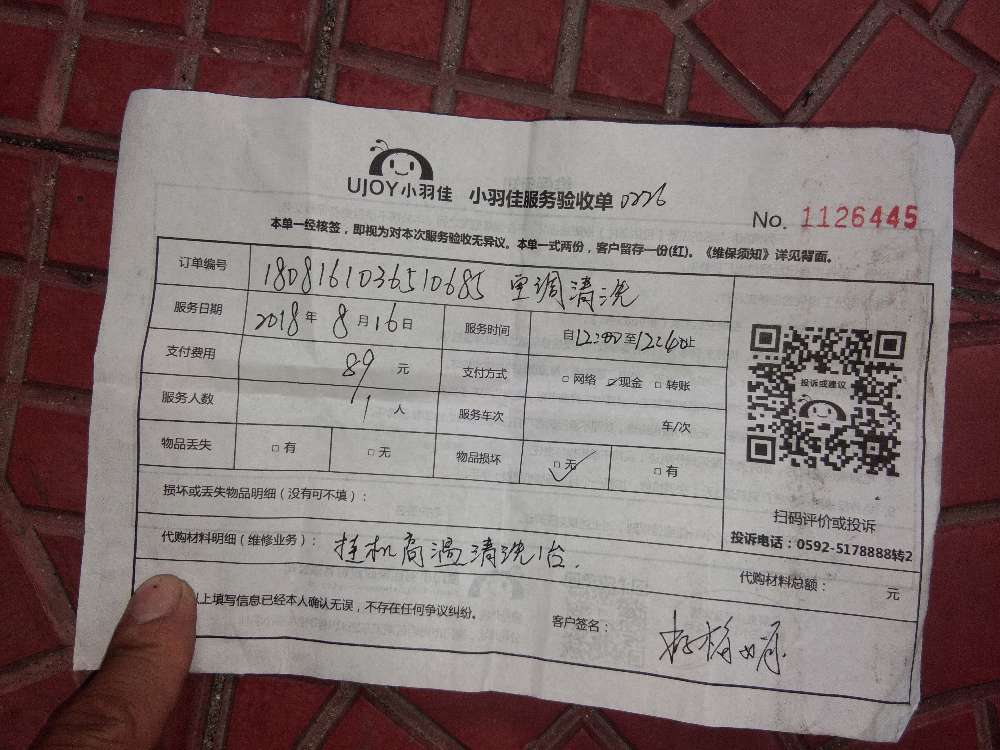 UJOY小羽佳 小羽佳服务验收单 0226
No. 1126445
本单一经核签，即视为对本次服务验收无异议。本单一式两份，客户留存一份(红)。《维保须知》详见背面。
订单编号 1808161036510685 空调清洗
服务日期 2018年 8月16日 服务时间 自12:00至12:40止
支付费用 89 元 支付方式 □ 网络 ✓现金 □ 转账
服务人数 1 人 服务车次 车/次
物品丢失 □ 有 □ 无 物品损坏 □ 无 □ 有
损坏或丢失物品明细（没有可不填）：
投诉或建议
扫码评价或投诉
投诉电话：0592-5178888转2
代购材料明细（维修业务）： 挂机高温清洗1台.
代购材料总额： 元
以上填写信息已经本人确认无误，不存在任何争议纠纷。
客户签名：